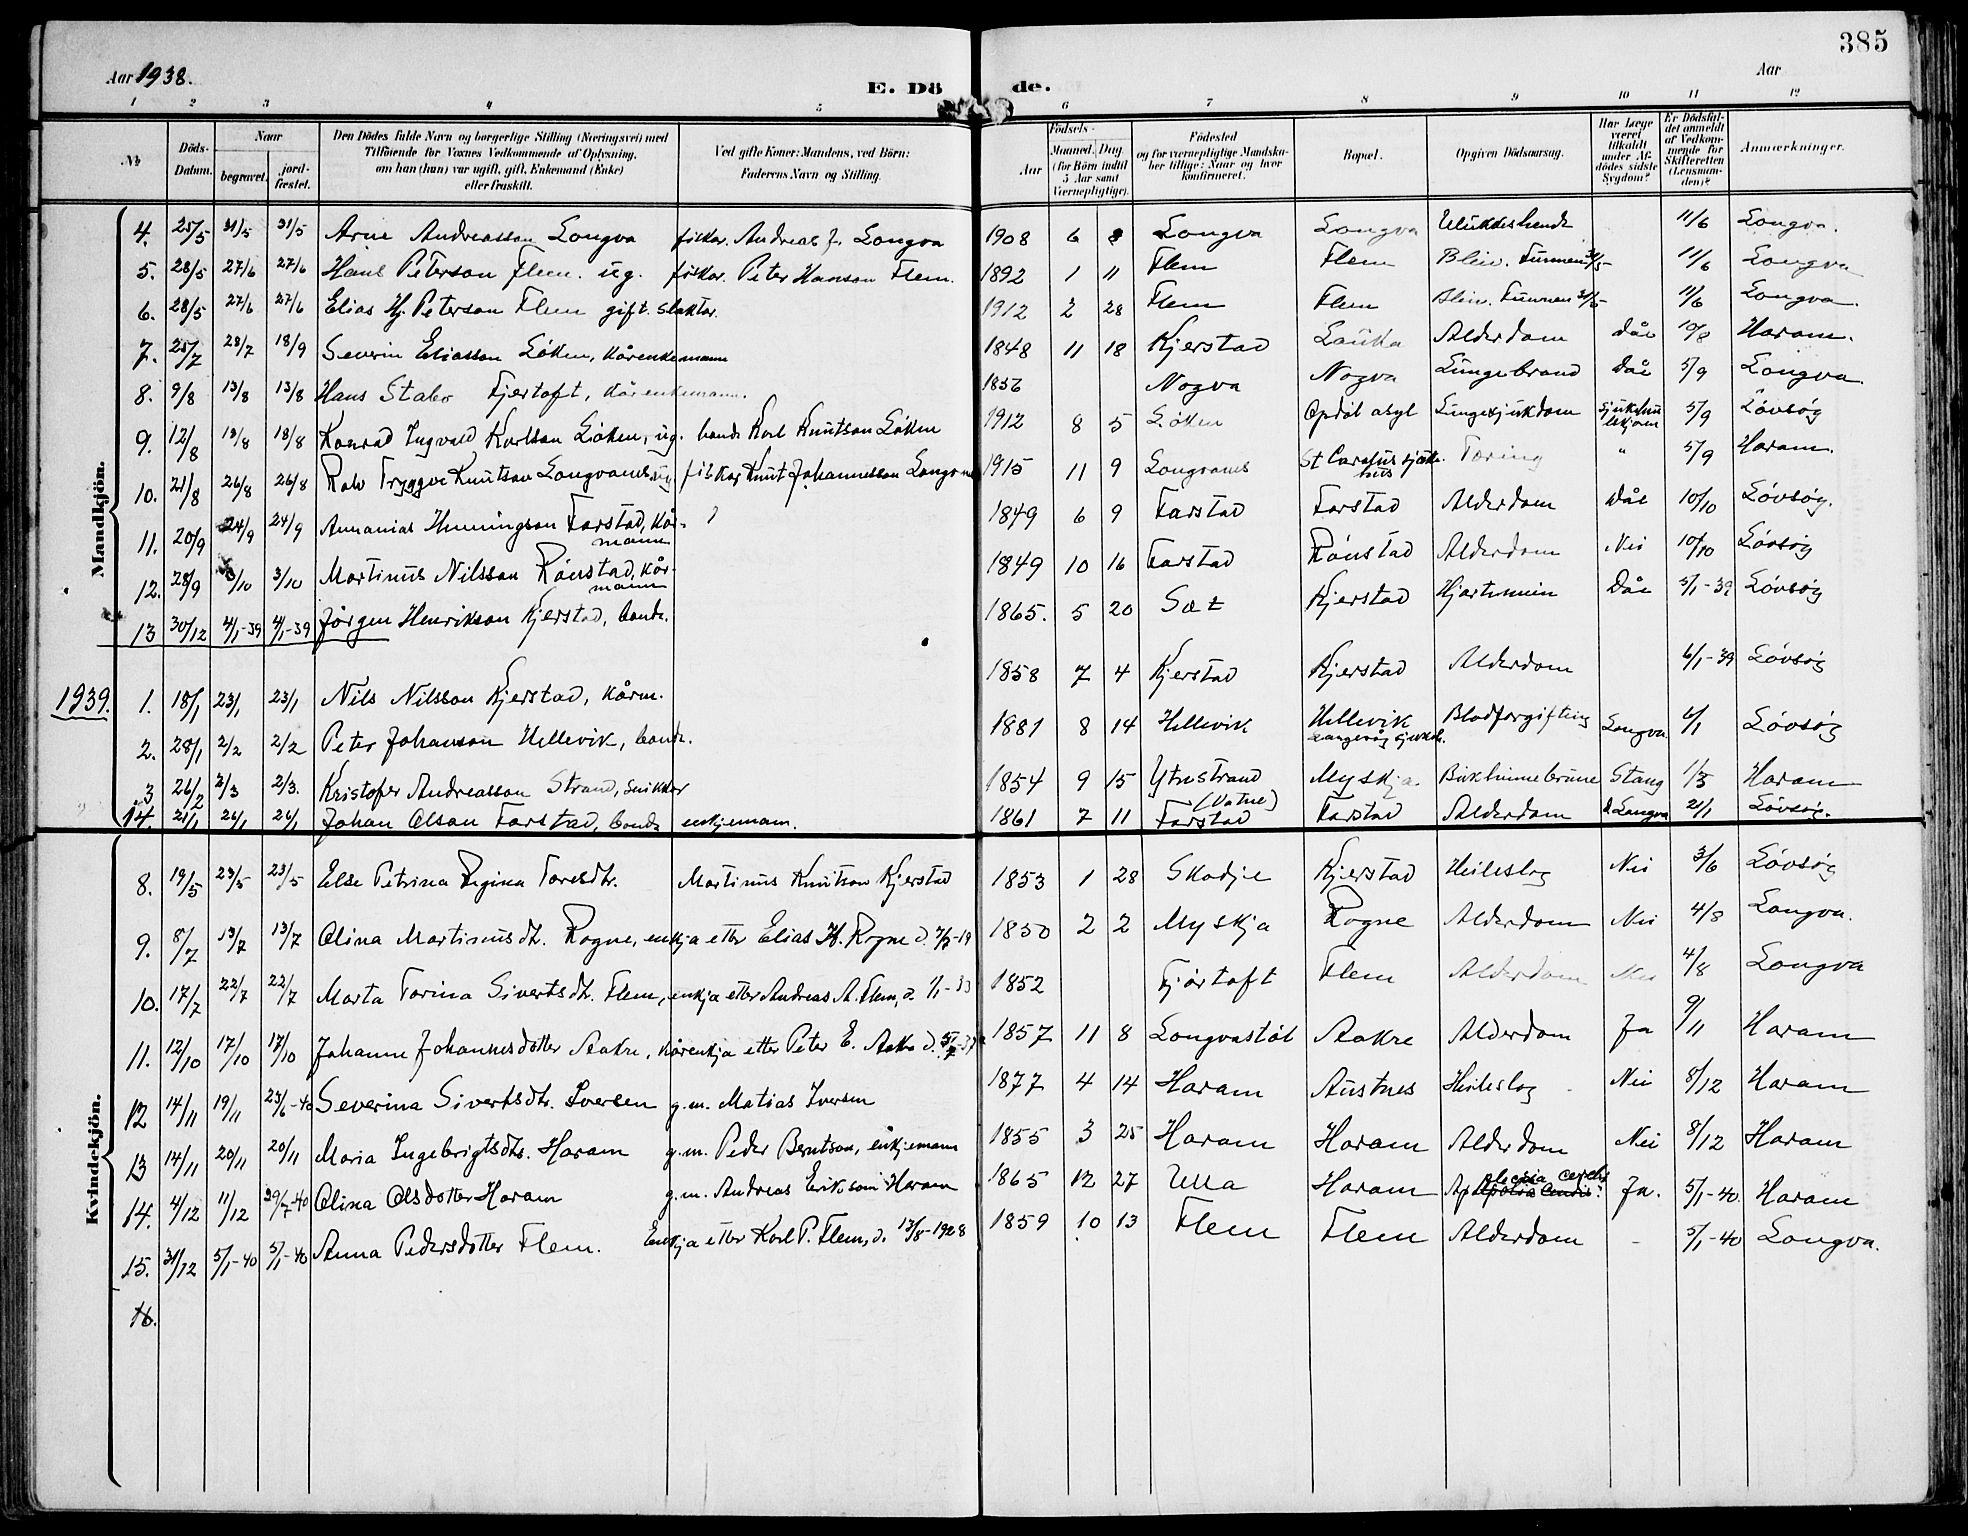 385
Aar 1938.
Aar
E. Dö de.
1 2 3 4 5 6 7 8 9 10 11 12
No
Döds-Datum.
Naar
begravet.
jord-fæstet.
Den Dödes fulde Navn og borgerlige Stilling (Næringsvei) med
Tilföiende for Voxnes Vedkommende af Oplysning,
om han (hun) var ugift, gift, Enkemand (Enke)
eller fraskilt.
Ved gifte Koner: Mandens, ved Börn:
Faderens Navn og Stilling.
Födsels-
Aar
Maaned. Dag
(for Börn indtil
5 Aar samt
Værnepligtige).
Födested
og for værnepligtige Mandska-
ber tillige: Naar og hvor
konfirmeret.
Bopæl.
Opgiven Dödsaarsag.
Har Læge
været
tilkaldt
under Af-
dödes sidste
Sygdom?
Er Dödsfal-
det anmeldt
af Vedkom-
mende for
Skifteretten
(Lensman-
den)?
Anmærkninger.
Mandkjön.
4. 25/5 31/5 31/5 Arne Andreasson Longva fiskar. Andreas J. Longva 1908 6 8 Longva Longva Ulukkeshende 11/6 Longva.
5. 28/5 27/6 27/6 Hans Peterson Flem. ug. fiskar. Peter Hanson Flem. 1892 1 11 Flem Flem Bleiv. Funnen 31/5 11/6 Longva
6. 28/5 27/6 27/6 Elias Hj. Peterson Flem gift. slaktar. 1912 2 28 Flem Flem Bleiv. Funnen 31/5 11/6 Longva.
7. 25/7 28/7 18/9 Severin Eliasson Löken, kårenkemann 1848 11 18 Kjerstad Lauka Alderdom Dåe 10/8 Haram.
8. 9/8 13/8 13/8 Hans Stabo Fjertoft, kårenkemann. 1856 Nogva Nogva Lungebrand Dåe 5/9 Longva.
9. 12/8 18/8 18/8 Konrad Ingvald Karlson Löken, ug. bonde Karl Knutson Löken 1912 8 5 Löken Opdöl asyl Lungesjukdom 5/9 Lövsög
10. 21/8 26/8 26/8 Rolv Tryggve Knutson Longvanes, ug fiskar Knut Johannesson Longvanes 1915 11 9 Longvanes St Carolus sjuke- hus Tæring " 5/9 Haram.
11. 20/9 24/9 24/9 Annanias Henningson Farstad, kår- mann 1849 6 9 Farstad Farstad Alderdom Dåe 10/10 Lövsög.
12. 28/9 3/10 3/10 Martinus Nilsson Rönstad, kår- mann 1849 10 16 Farstad Rönstad Alderdom Nei 10/10 Lövsög
13 30/12 4/1-39 4/1-39 Jörgen Henrikson Kjerstad, bonde. 1865. 5 20 Sæt Kjerstad Dåe 5/1-39 Lövsög
1939. 1. 18/1 23/1 23/1 Nils Nilsson Kjerstad, kårm. 1858 7 4 Kjerstad Kjerstad Alderdom 6/1-39 Lövsög
2. 28/1 2/2 2/2 Peter Johanson Hellevik, bonde. 1881 8 14 Hellevik Hellevik Langevåg sjukeh. Blodforgifting Longva 6/1 Lövsög
3 26/2 2/3 2/3. Kristofer Andreasson Strand, snikker 1854 9 15 Ytrestrand (Vatne) Myskja Stang 1/3 Haram
14. 21/1 26/1 26/1 Johan Olson Farstad, bonde enkjemann. 1861 7 11 Farstad Farstad Alderdom d Longva 21/1 Lövsög.
Kvindekjön.
8. 19/5 23/5 23/5 Else Petrina Regina Toresdtr. Martinus Knutson Kjerstad 1853 1 28 Skodje Kjerstad Heileslag Nei 3/6 Lövsög
9. 8/7 13/7 13/7 Olina Martinusdtr. Rogne, enkja etter Elias H. Rogne d. 1850 2 2 Myskja Rogne Alderdom Nei 4/8 Longva.
10. 17/7 22/7 22/7 Marta Torina Sivertsdtr. Flem, enkja etter Andreas A. Flem, d. 1852 Fjörtoft Flem Alderdom Nei 4/8 Longva
11. 12/10 17/10 17/10 Johanne Johannesdotter Aakre, kårenkja etter Peter E. Aakre d. 1857 11 8 Longvastöl Aakre Alderdom Ja 9/11 Haram
12 14/11 19/11 23/6-40 Severina Sivertsdtr. Iversen g.m. Matias Iversen 1877 4 14 Haram Austnes Heileslag Nei 8/12 Haram
13 14/11 20/11 20/11 Maria Ingebrigtsdtr. Haram g.m. Peder Berntson, enkjemann 1855 3 25 Haram Haram Alderdom Nei 8/12 Haram
14. 4/12 11/12 29/7-40 Olina Olsdotter Haram g.m. Andreas Erikson Haram 1865 12 27 Ulla Haram Ja. 5/1-40 Haram
15. 31/12 5/1-40 5/1-40 Anna Pedersdotter Flem. Enkja etter Karl P. Flem, d. 13/8-1928 1859 10 13 Flem Flem Alderdom - 5/1-40 Longva.
16.